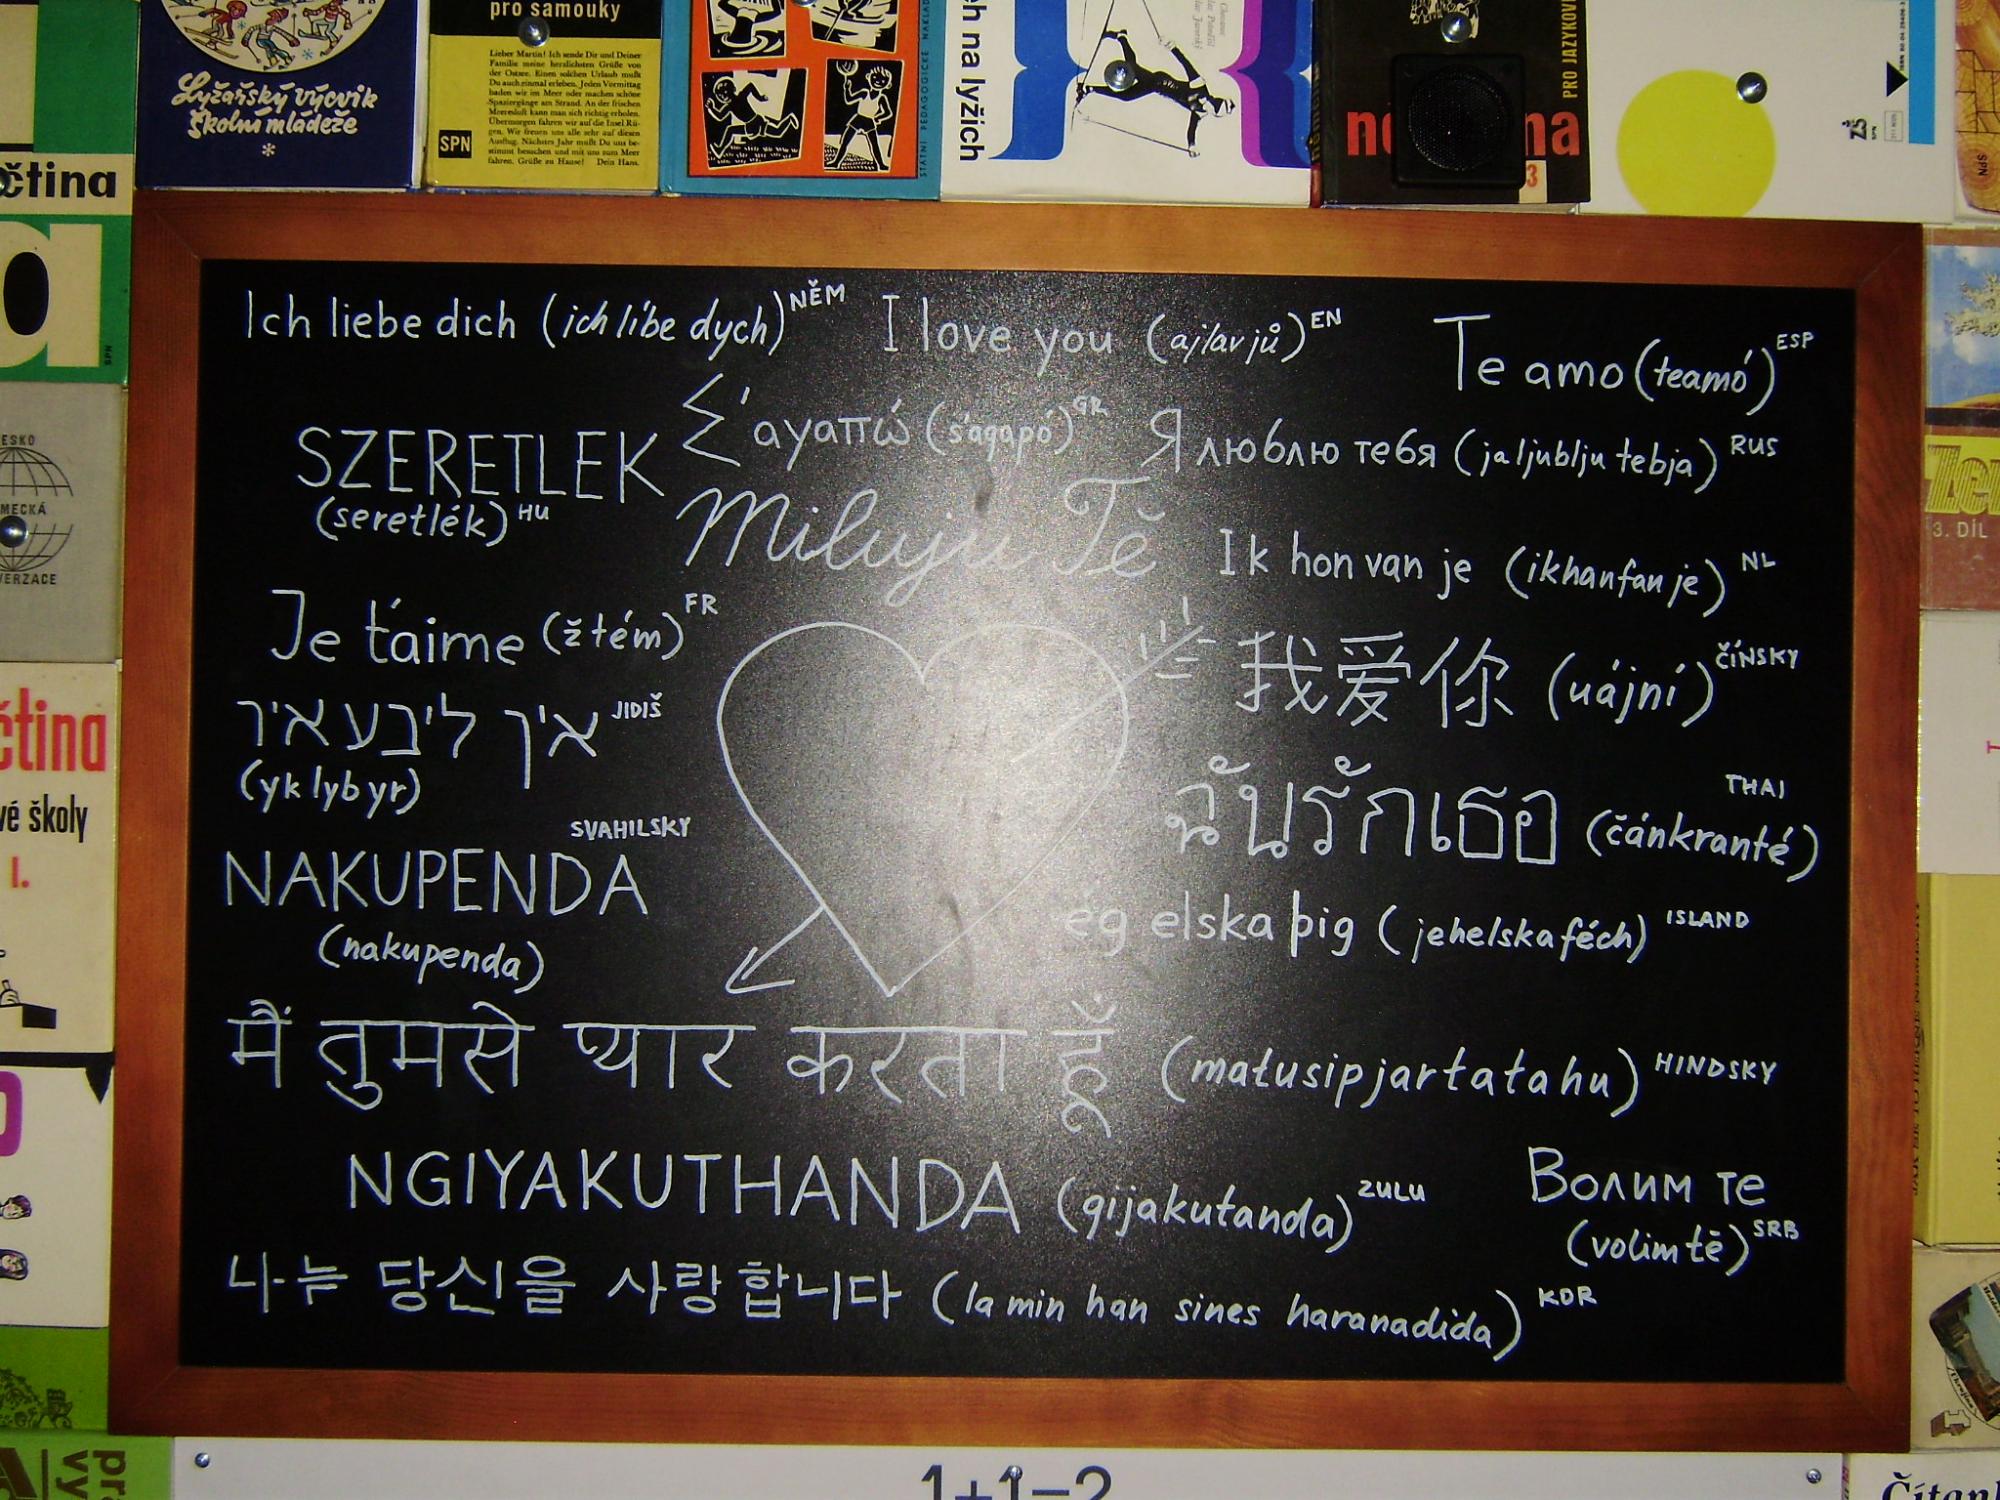 Lyžařský výcvik
školní mládeže
*
pro samouky
Lieber Martin! Ich sende Dir und Deiner
Familie meine herzlichsten Grüße von
der Ostsee. Einen solchen Urlaub mußt
Du auch einmal erleben. Jeden Vormittag
baden wir im Meer oder machen schöne
Spaziergänge am Strand. An der frischen
Meeresluft kann man sich richtig erholen.
Übermorgen fahren wir auf die Insel Rü-
gen. Wir freuen uns alle sehr auf diesen
Ausflug. Nächstes Jahr mußt Du uns be-
stimmt besuchen und mit uns zum Meer
fahren. Grüße zu Hause! Dein Hans.
SPN
STÁTNÍ PEDAGOGICKÉ NAKLAD
ch na lyžích
PRO JAZYKOV
3
ZŠ
SPN
čtina
a
SPN
ESKO
MECKÁ
VERZACE
čtina
vé školy
I.
Ich liebe dich (ich líbe dych) NĚM
I love you (ajlavjů) EN
Te amo (teamó) ESP
Σ'αγαπώ (s'agapó) GR
SZERETLEK
(seretlék) HU
Я люблю тебя (ja ljublju tebja) RUS
Miluju Tě
Ik hon van je (ikhanfan je) NL
Je t'aime (ž tém) FR
我爱你 (uájní) ČÍNSKY
איך ליבע איר JIDIŠ
(yk lyb yr)
ฉันรักเธอ (čánkranté) THAI
SVAHILSKY
NAKUPENDA
(nakupenda)
ég elska þig (jehelskaféch) ISLAND
मैं तुमसे प्यार करता हूँ (matusipjartatahu) HINDSKY
NGIYAKUTHANDA (gijakutanda) ZULU
Волим те
(volimtě) SRB
나는 당신을 사랑합니다 (la min han sines haranadida) KOR
3. DÍL
1+1=2